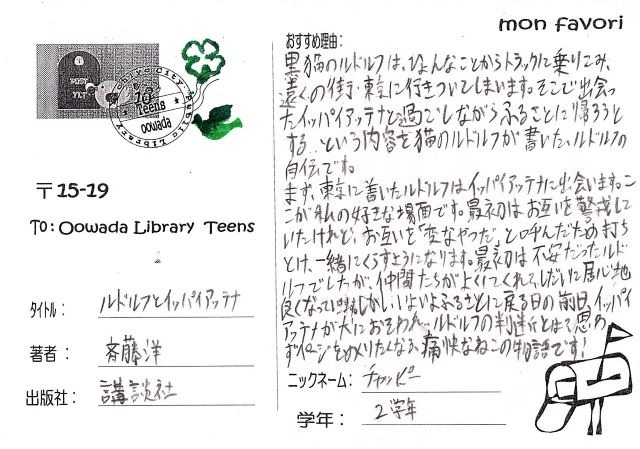 mon favori
POST
YLT
Yachiyo City Public Library
10
Teens
oowada
〒15-19
To: Oowada Library Teens
タイトル: ルドルフとイッパイアッテナ
著者: 斉藤洋
出版社: 講談社
おすすめ理由:
黒猫のルドルフは、ひょんなことからトラックに乗りこみ、
遠くの街・東京に行きついてしまいます。そこで出会っ
たイッパイアッテナと過ごしながらふるさとに帰ろうと
する…という内容を猫のルドルフが書いた、ルドルフの
自伝です。
まず、東京に着いたルドルフはイッパイアッテナに出会います。こ
こが私の好きな場面です。最初はお互いを警戒して
いたけれど、お互いを「変なやつだ」と呼んだため打ち
とけ、一緒にくらすようになります。最初は不安だったルド
ルフでしたが、仲間たちがよくてくれて、しだいに居心地
良くなって しかし、いよいよふるさとに戻る日の前日、イッパイ
アッテナが犬におそわれ…ルドルフの判断とは？思わ
ずページをめくりたくなる、痛快なねこの物語です！
ニックネーム: チャッピー
学年: 2学年